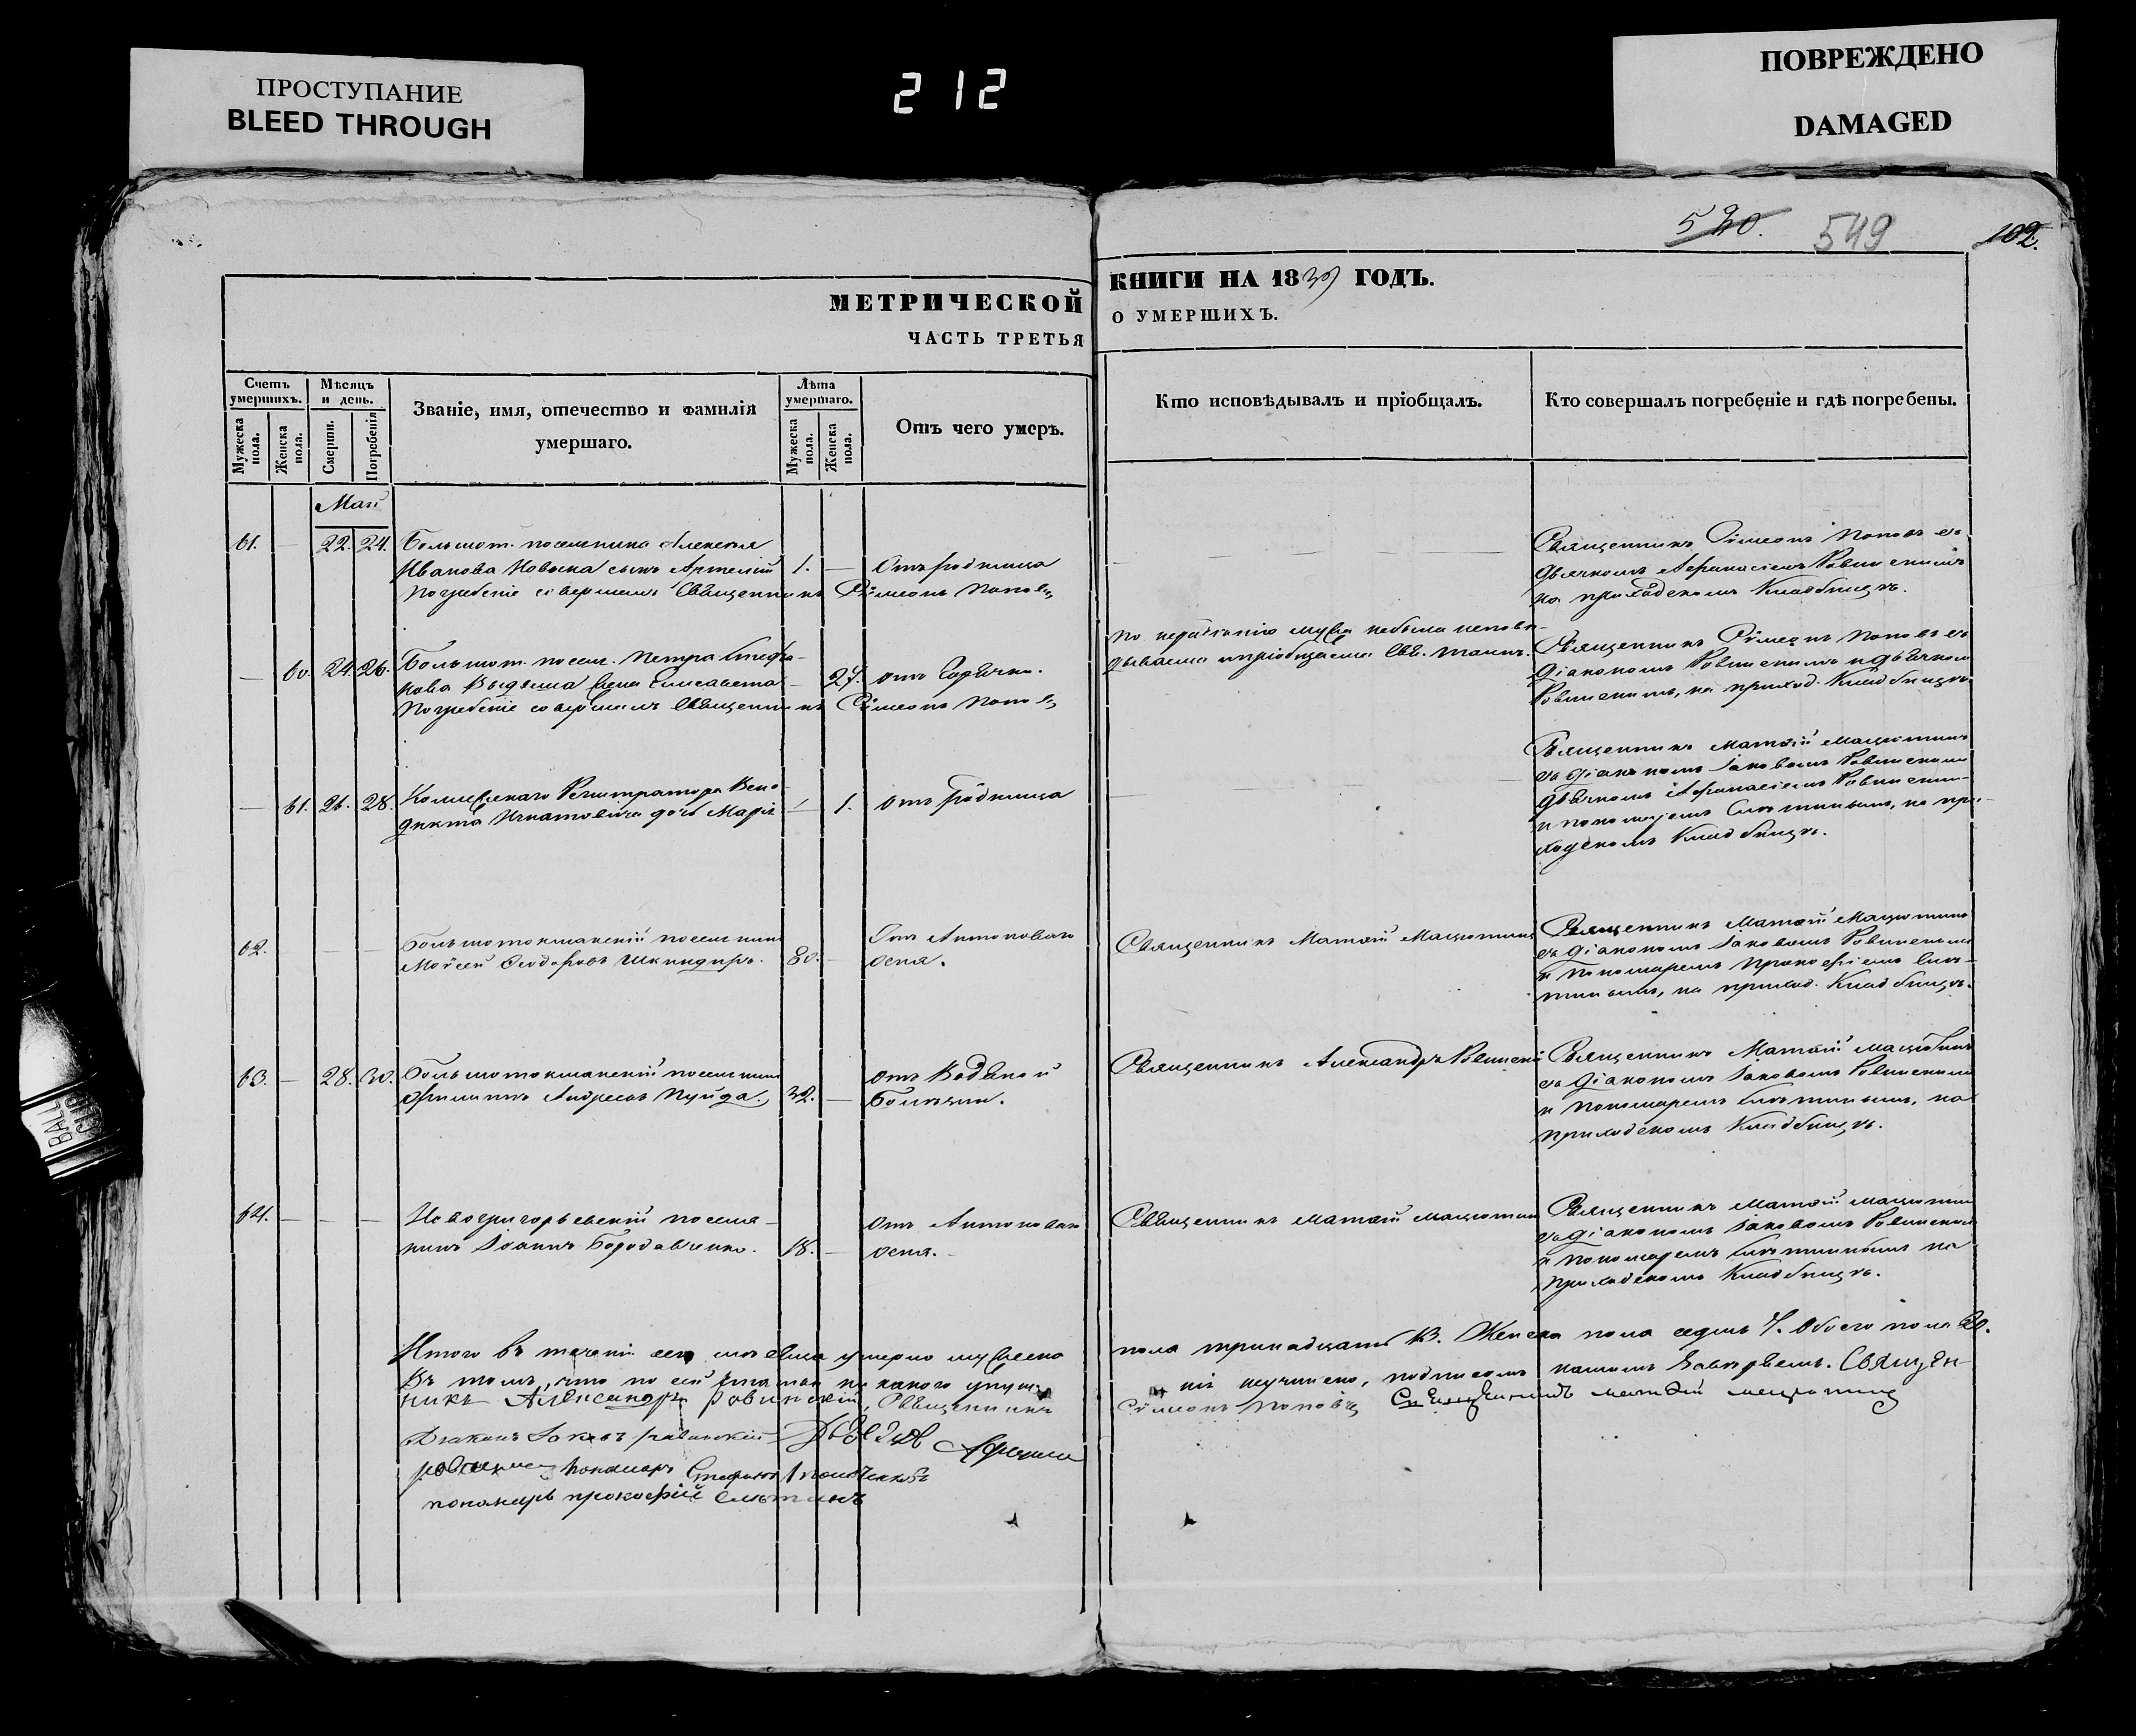 ПРОСТУПАНИЕ
BLEED THROUGH
212
ПОВРЕЖДЕНО
DAMAGED
520. 549 102.
МЕТРИЧЕСКОЙ КНИГИ НА 1839 ГОДЪ.
ЧАСТЬ ТРЕТЬЯ О УМЕРШИХЪ.
Счетъ умершихъ.
Мужеска пола.
Женска пола.
Мѣсяцъ и день.
Смерти.
Погребенія
Званіе, имя, отечество и фамилія
умершаго.
Лѣта умершаго.
Мужеска пола.
Женска пола.
Отъ чего умеръ.
Кто исповѣдывалъ и пріобщалъ.
Кто совершалъ погребеніе и гдѣ погребены.
Май
61. — 22. 24. Большот. поселянина Алексея
Иванова Новака сынъ Артемій 1. — Отъ родимца
Погребеніе совершалъ Священникъ Сѷмеонъ Поповъ
Священникъ Сѷмеонъ Поповъ съ
дьячкомъ Афанасіемъ Ровинскимъ
на приходскомъ Кладбищѣ.
— 60. 24. 26. Большот. посел. Петра Стефа-
нова жена Елисавета — 27. отъ Горячки.
Погребеніе совершалъ Священникъ Сѷмеонъ Поповъ
по мужа небыла исповѣ-
дываема и пріобщаема Свя. Таинъ.
Священникъ Сѷмеонъ Поповъ съ
Діакономъ Ровинскимъ и дьячкомъ
Ровинскимъ, на приход. Кладбищѣ.
— 61. 26. 28. Коллежскаго Регистратора Вене-
дикта Игнатовича дочь Марія — 1. отъ родимца
Священникъ Матѳій Мацютинъ
съ Діакономъ Іаковомъ Ровинскимъ
дьячкомъ Афанасіемъ Ровинским
и пономаремъ на при-
ходскомъ Кладбищѣ.
62. — — — Большотокмакскій поселянин
Моѷсей Ѳеодоровъ Шкиндиръ. 80. — Отъ Антонова
огня.
Священникъ Матѳій Мацютинъ
Священникъ Матѳій Мацютинъ
съ Діакономъ Іаковомъ Ровинскимъ
и пономаремъ Прокофіемъ
на приход. Кладбищѣ.
63. — 28. 30. Большотокмакскій поселянин
Филиппъ Андреевъ Пуйда. 32. — отъ Водяной
Болѣзни.
Священникъ Александръ Ровинскій
Священникъ Матѳій Мацютинъ
съ Діакономъ Іаковомъ Ровинскимъ
и пономаремъ на
приходскомъ Кладбищѣ.
64. — — — Новогригорьевскій поселя-
нинъ Іоаннъ Бородавченко. 18. — Отъ Антонова
огня.
Священникъ Матѳій Мацютин
Священникъ Матѳій Мацютин
съ Діакономъ Іаковомъ Ровинским
и пономаремъ на
приходскомъ Кладбищѣ.
Итого въ теченіи сего мѣсяца умерло мужеска пола тринадцать 13. Женска пола седмь 7. Обоего пола 20.
Въ томъ, что по сей статьи никакого упущ- ніе неучинено, подписомъ нашимъ Завѣряемъ. Священ-
никъ Александръ Ровинскій, Священникъ Сѷмеонъ Поповъ Священникъ Матѳій Мацютинъ
Діаконъ Іаковъ Ровинскій
пономарь
пономарь Прокофій